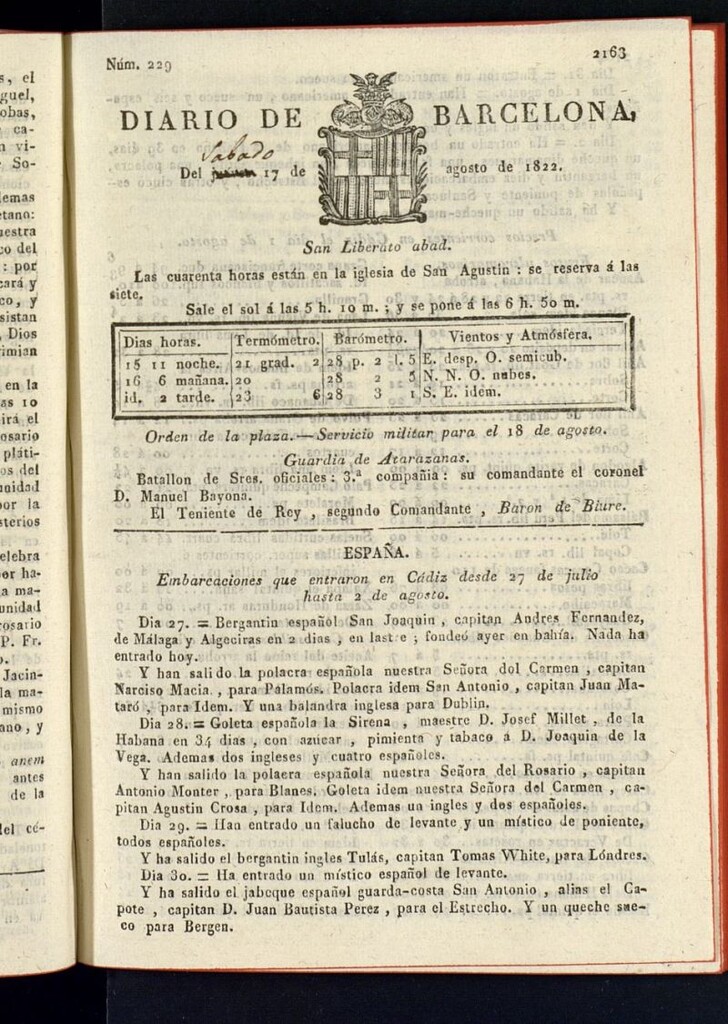 s, el
guel,
obas,
ca-
n vi-
So-
emas
etano:
uestra
co del
: por
cará y
co, y
sistan
Dios
rimian
en la
as 10
irá el
osario
pláti-
os del
unidad
por la
sterios
elebra
or ha-
a ma-
unidad
rosario
P. Fr.
o.
Jacin-
la ma-
mismo
ano, y
anem
antes
de la
del cé-
Núm. 229
2163
DIARIO DE BARCELONA,
Sabado
Del 17 de agosto de 1822.
San Liberato abad.
Las cuarenta horas están en la iglesia de San Agustin : se reserva á las
siete.
Sale el sol á las 5 h. 10 m. ; y se pone á las 6 h. 50 m.
Dias horas. Termómetro. Barómetro. Vientos y Atmósfera.
15 11 noche. 21 grad. 2 28 p. 2 l. 5 E. desp. O. semicub.
16 6 mañana. 20 28 2 5 N. N. O. nubes.
id. 2 tarde. 23 6 28 3 1 S. E. idem.
Orden de la plaza.—Servicio militar para el 18 de agosto.
Guardia de Atarazanas.
Batallon de Sres. oficiales : 3.ª compañia : su comandante el coronel
D. Manuel Bayona.
El Teniente de Rey , segundo Comandante , Baron de Biure.
ESPAÑA.
Embarcaciones que entraron en Cádiz desde 27 de julio
hasta 2 de agosto.
Dia 27. = Bergantin español San Joaquin , capitan Andres Fernandez,
de Málaga y Algeciras en 2 dias , en lastre ; fondeó ayer en bahía. Nada ha
entrado hoy.
Y han salido la polacra española nuestra Señora dol Carmen , capitan
Narciso Macia , para Palamós. Polacra idem San Antonio , capitan Juan Ma-
taró , para Idem. Y una balandra inglesa para Dublin.
Dia 28. = Goleta española la Sirena , maestre D. Josef Millet , de la
Habana en 34 dias , con azucar , pimienta y tabaco á D. Joaquin de la
Vega. Ademas dos ingleses y cuatro españoles.
Y han salido la polacra española nuestra Señora del Rosario , capitan
Antonio Monter , para Blanes. Goleta idem nuestra Señora del Carmen , ca-
pitan Agustin Crosa , para Idem. Ademas un ingles y dos españoles.
Dia 29. = Han entrado un falucho de levante y un místico de poniente,
todos españoles.
Y ha salido el bergantin ingles Tulás, capitan Tomas White, para Lóndres.
Dia 30. = Ha entrado un místico español de levante.
Y ha salido el jabeque español guarda-costa San Antonio , alias el Ca-
pote , capitan D. Juan Bautista Perez , para el Estrecho. Y un queche sue-
co para Bergen.